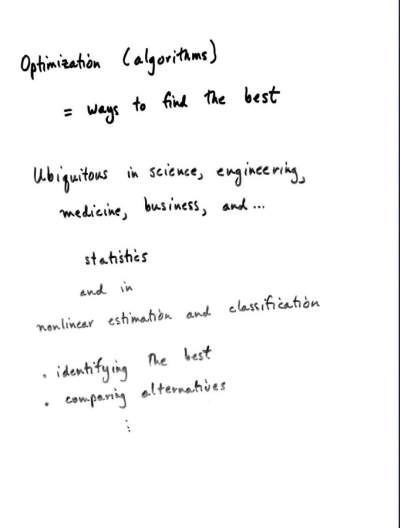 Optimization (algorithms)
= ways to find the best
Ubiquitous in science, engineering,
medicine, business, and ...
statistics
and in
nonlinear estimation and classification
• identifying the best
• comparing alternatives
⋮